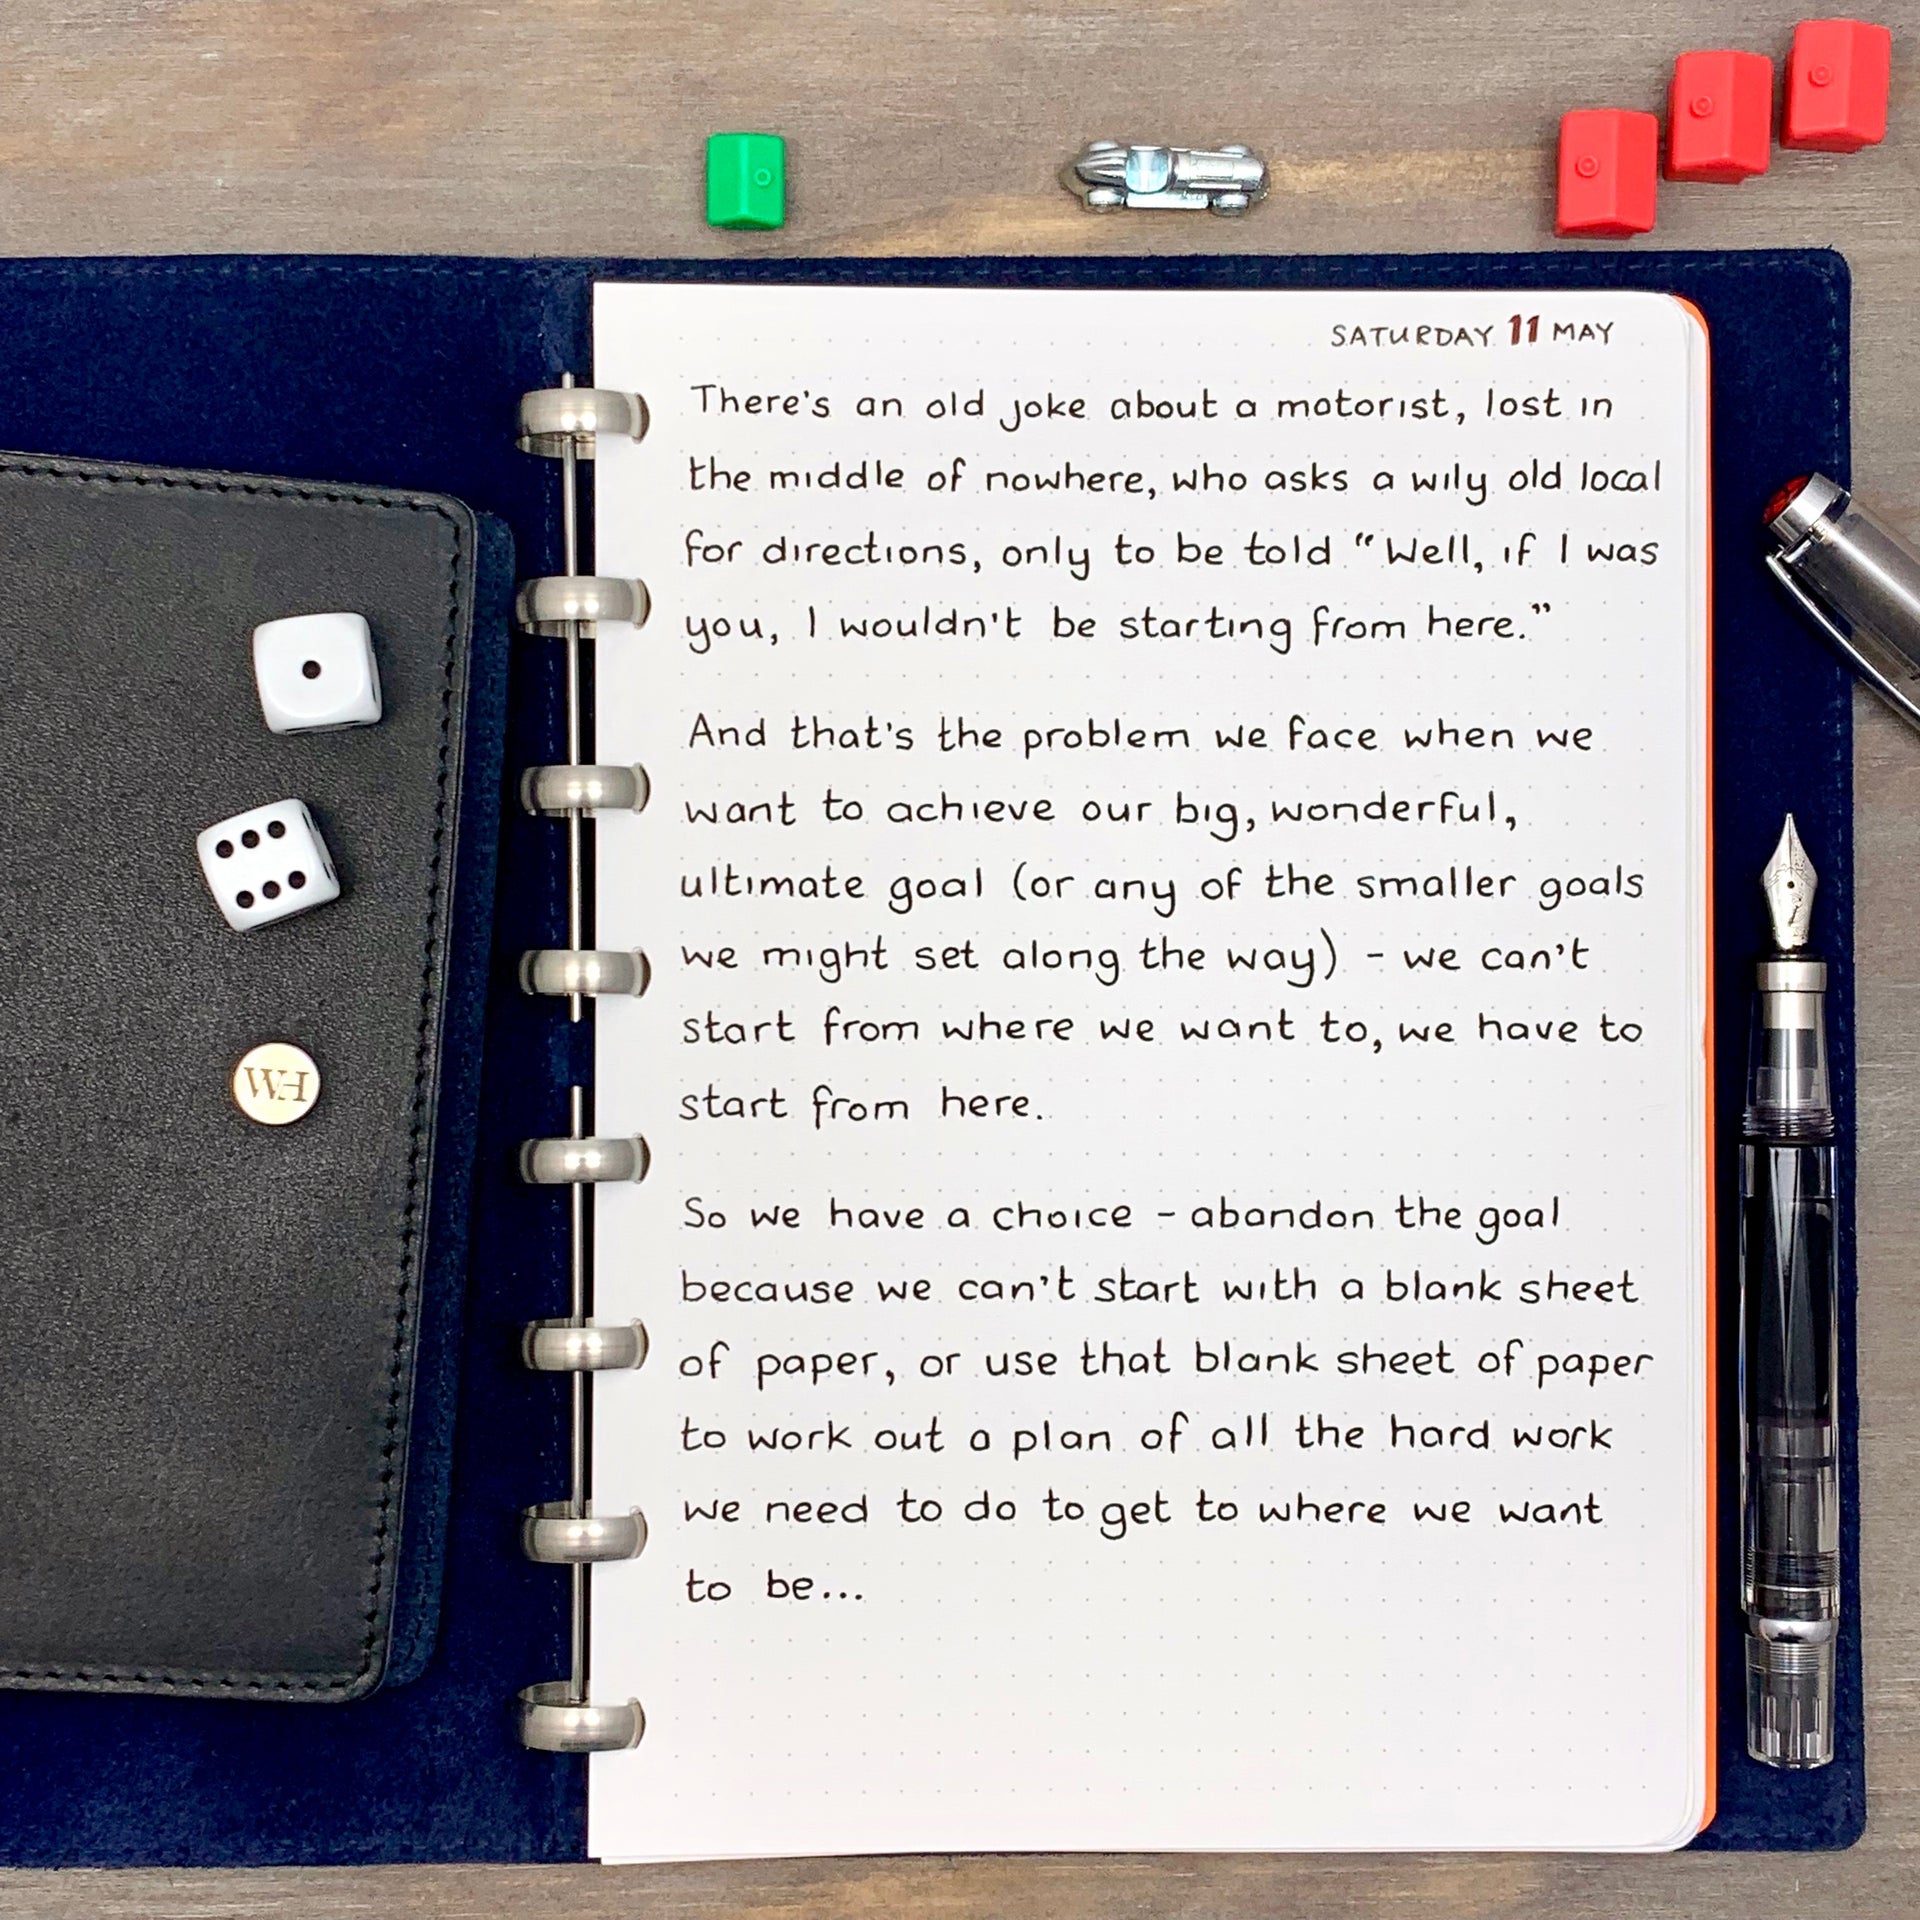 SATURDAY 11 MAY
There's an old joke about a motorist, lost in
the middle of nowhere, who asks a wily old local
for directions, only to be told "Well, if I was
you, I wouldn't be starting from here."
And that's the problem we face when we
want to achieve our big, wonderful,
ultimate goal (or any of the smaller goals
we might set along the way) - we can't
start from where we want to, we have to
start from here.
So we have a choice - abandon the goal
because we can't start with a blank sheet
of paper, or use that blank sheet of paper
to work out a plan of all the hard work
we need to do to get to where we want
to be...
WH